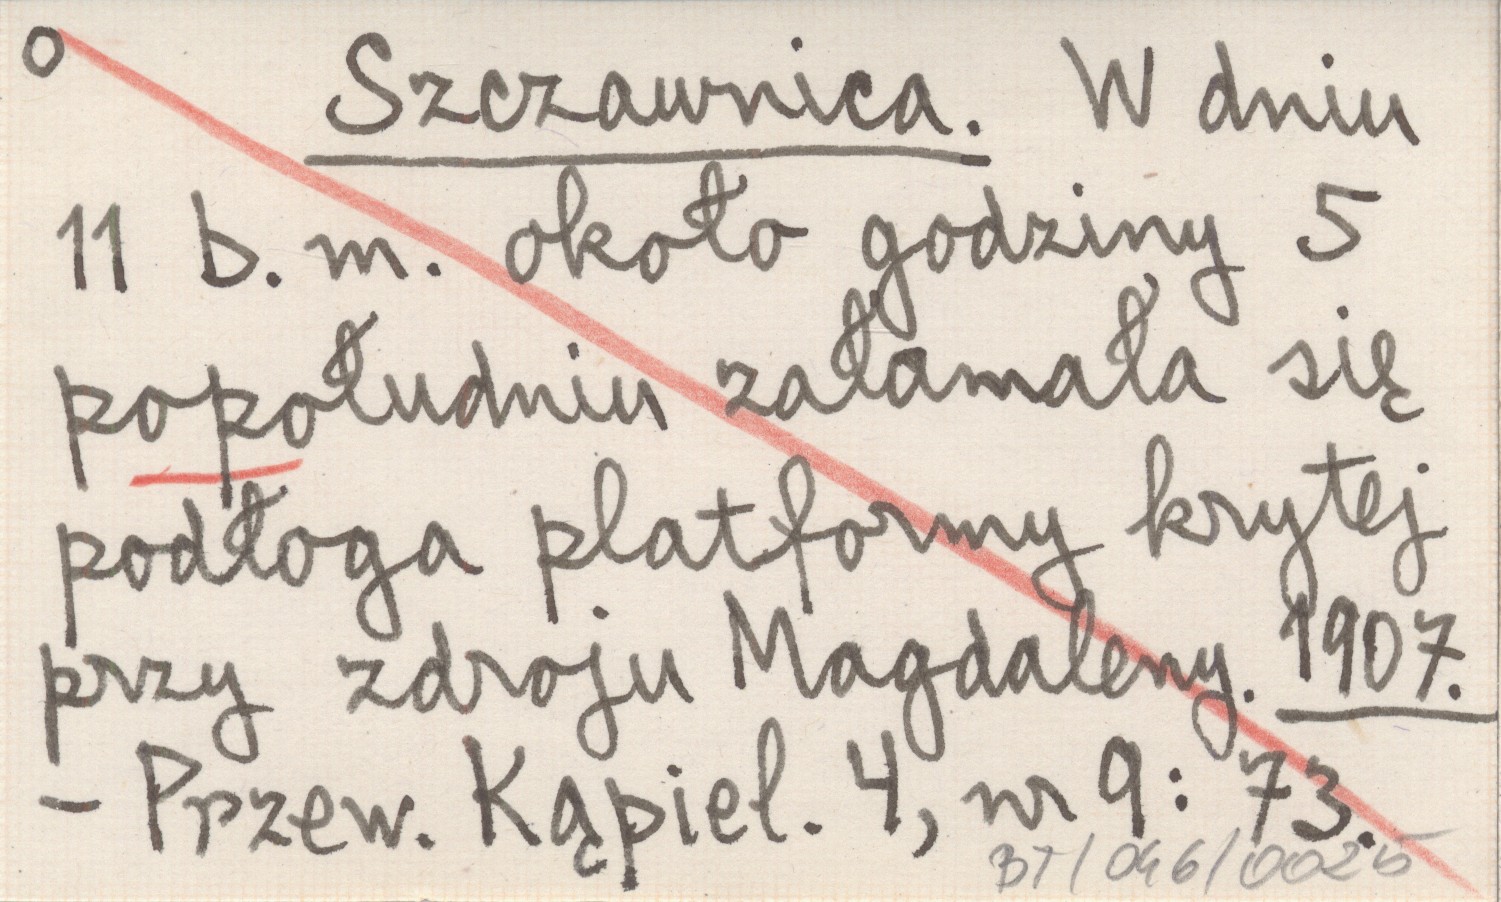 o Szczawnica. W dniu
11 b. m. około godziny 5
popołudniu załamała się
podłoga platformy krytej
przy zdroju Magdaleny. 1907.
– Przew. Kąpiel. 4, nr 9: 73.
BT/046/0025